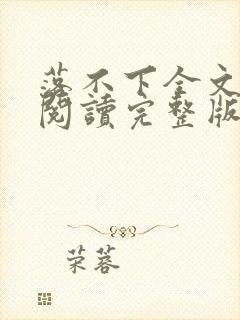 落不下全文
閱讀完整版
荣蓉